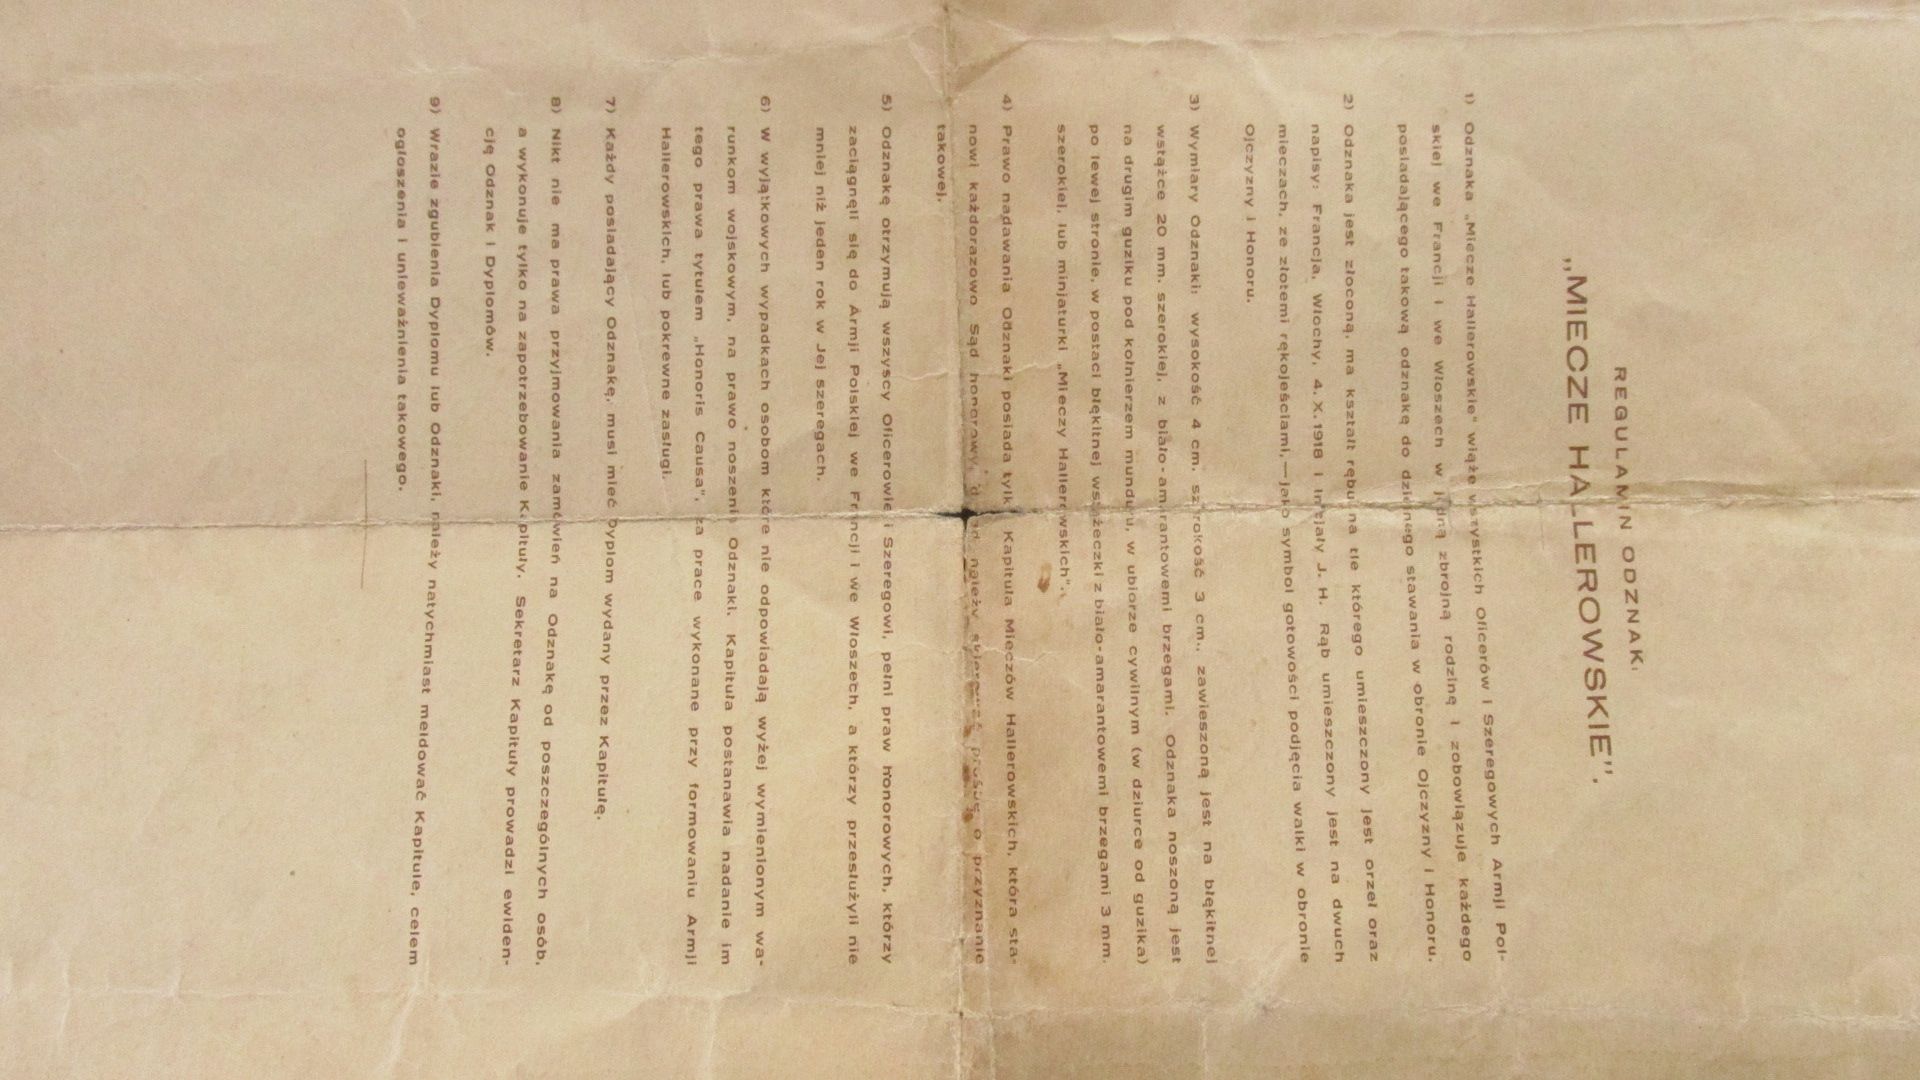 REGULAMIN ODZNAKI
„MIECZE HALLEROWSKIE”.
1) Odznaka „Miecze Hallerowskie” wiąże wszystkich Oficerów i Szeregowych Armji Pol-
skiej we Francji i we Włoszech w jedną zbrojną rodzinę i zobowiązuje każdego
posiadającego takową odznakę do dzielnego stawania w obronie Ojczyzny i Honoru.
2) Odznaka jest złoconą, ma kształt rębu na tle którego umieszczony jest orzeł oraz
napisy: Francja, Włochy, 4. X. 1918 i Inicjały J. H. Rąb umieszczony jest na dwuch
mieczach, ze złotemi rękojeściami,—jako symbol gotowości podjęcia walki w obronie
Ojczyzny i Honoru.
3) Wymiary Odznaki: wysokość 4 cm. szerokość 3 cm., zawieszoną jest na błękitnej
wstążce 20 mm. szerokiej, z biało-amarantowemi brzegami. Odznaka noszoną jest
na drugim guziku pod kołnierzem munduru, w ubiorze cywilnym (w dziurce od guzika)
po lewej stronie, w postaci błękitnej wstążeczki z biało-amarantowemi brzegami 3 mm.
szerokiej, lub minjaturki „Mieczy Hallerowskich”.
4) Prawo nadawania Odznaki posiada tylko Kapituła Mieczów Hallerowskich, która sta-
nowi każdorazowo Sąd honorowy, dokąd należy skierować prośbę o przyznanie
takowej.
5) Odznakę otrzymują wszyscy Oficerowie i Szeregowi, pełni praw honorowych, którzy
zaciągnęli się do Armji Polskiej we Francji i we Włoszech, a którzy przesłużyli nie
mniej niż jeden rok w Jej szeregach.
6) W wyjątkowych wypadkach osobom które nie odpowiadają wyżej wymienionym wa-
runkom wojskowym, na prawo noszenia Odznaki, Kapituła postanawia nadanie im
tego prawa tytułem „Honoris Causa”, za prace wykonane przy formowaniu Armji
Hallerowskich, lub pokrewne zasługi.
7) Każdy posiadający Odznakę, musi mieć Dyplom wydany przez Kapitułę.
8) Nikt nie ma prawa przyjmowania zamówień na Odznakę od poszczególnych osób,
a wykonuje tylko na zapotrzebowanie Kapituły. Sekretarz Kapituły prowadzi ewiden-
cję Odznak i Dyplomów.
9) Wrazie zgubienia Dyplomu lub Odznaki, należy natychmiast meldować Kapitule, celem
ogłoszenia i unieważnienia takowego.